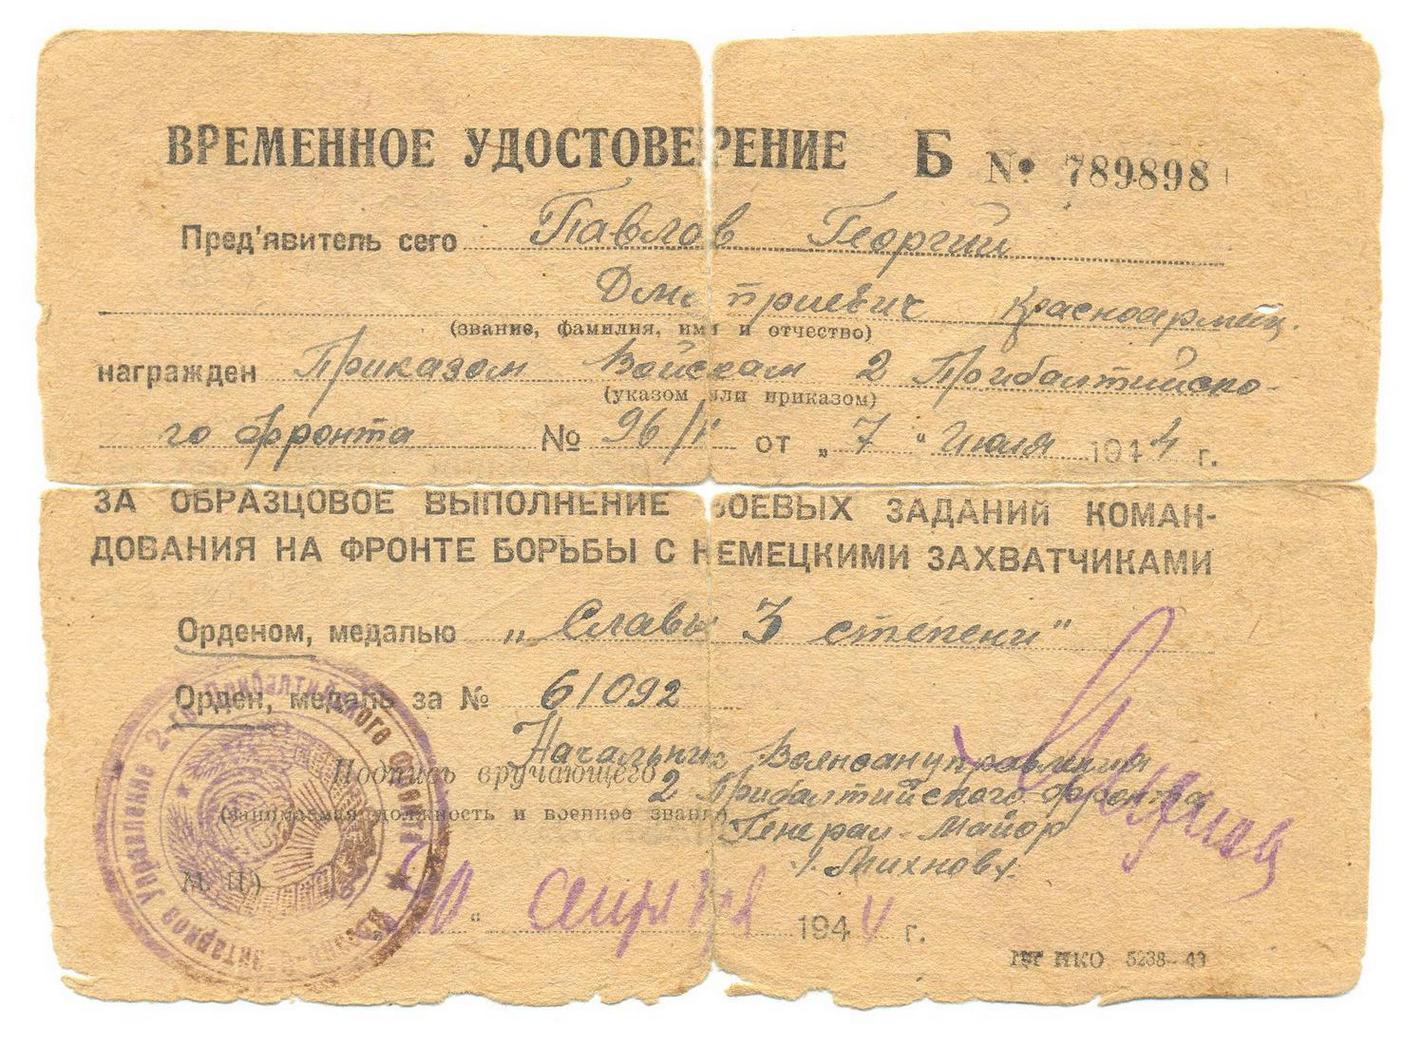 ВРЕМЕННОЕ УДОСТОВЕРЕНИЕ Б № 789898
Пред'явитель сего Павлов Георгий
Дмитриевич Красноармеец.
(звание, фамилия, имя и отчество)
награжден Приказом Войскам 2 Прибалтийско-
(указом или приказом)
го фронта № 96/н от „7" июля 1944 г.
ЗА ОБРАЗЦОВОЕ ВЫПОЛНЕНИЕ БОЕВЫХ ЗАДАНИЙ КОМАН-
ДОВАНИЯ НА ФРОНТЕ БОРЬБЫ С НЕМЕЦКИМИ ЗАХВАТЧИКАМИ
Орденом, медалью „Славы 3 степени"
Орден, медаль за № 61092
Начальник Военсануправления
Подпись вручающего 2 Прибалтийского фронта
(занимаемая должность и военное звание) Генерал-Майор
М. П. /Михнов/.
" 1944 г.
НКО 5238-43
Управление 2-го Прибалтийского фронта